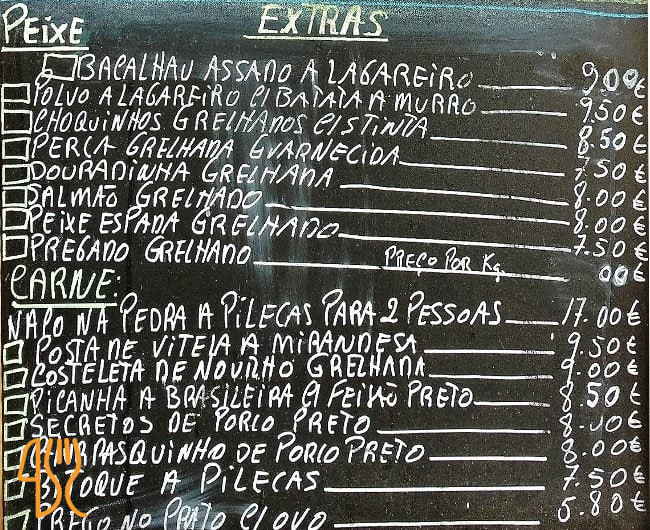 EXTRAS
PEIXE
BACALHAU ASSADO A LAGAREIRO 9.00€
POLVO A LAGAREIRO C/ BATATA A MURRO 9.50€
CHOQUINHOS GRELHADOS C/ S TINTA 8.50€
PERCA GRELHADA GUARNECIDA 7.50€
DOURADINHA GRELHADA 8.00€
SALMÃO GRELHADO 8.00€
PEIXE ESPADA GRELHADO 7.50€
PREGADO GRELHADO PREÇO POR Kg. 00€
CARNE:
NACO NA PEDRA A PILECAS PARA 2 PESSOAS 17.00€
POSTA DE VITELA A MIRANDESA 9.50€
COSTELETA DE NOVILHO GRELHADA 9.00€
PICANHA A BRASILEIRA C/ FEIJÃO PRETO 8.50€
SECRETOS DE PORCO PRETO 8.00€
DE PORCO PRETO 8.00€
A PILECAS 7.50€
PREGO NO PRATO C/ OVO 5.80€